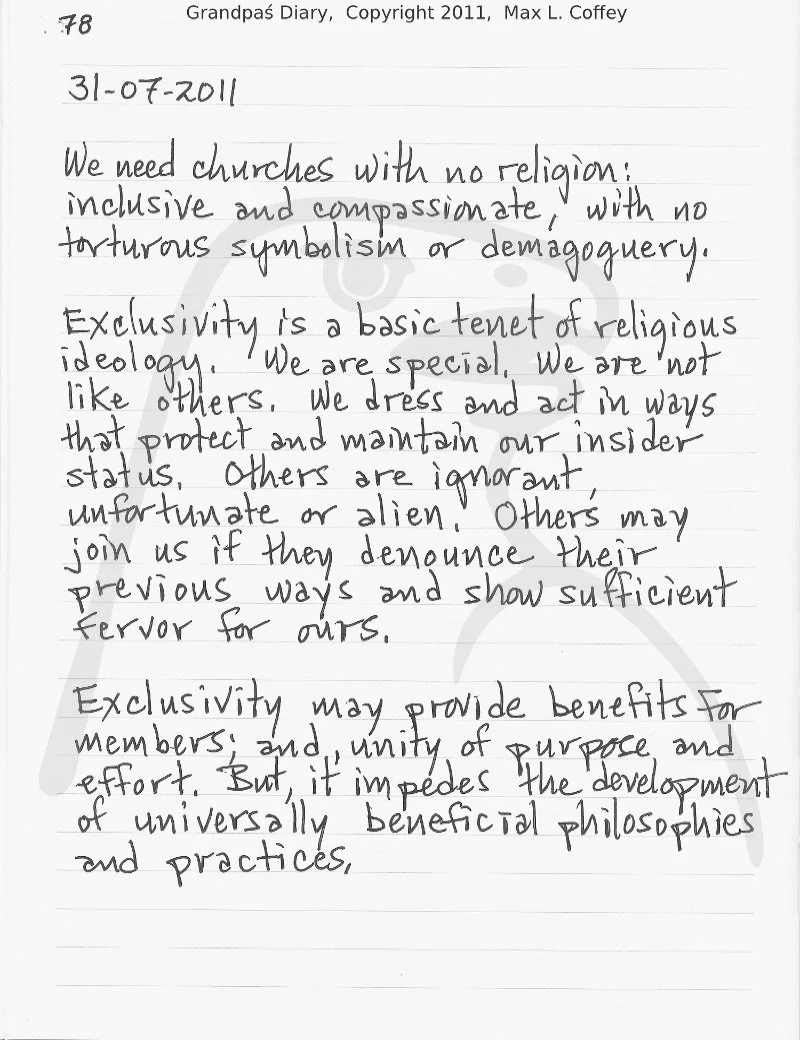 Grandpaś Diary, Copyright 2011, Max L. Coffey
78
31-07-2011
We need churches with no religion:
inclusive and compassionate, with no
torturous symbolism or demagoguery.
Exclusivity is a basic tenet of religious
ideology. "We are special. We are not
like others. We dress and act in ways
that protect and maintain our insider
status. Others are ignorant,
unfortunate or alien." Others may
join us if they denounce their
previous ways and show sufficient
fervor for ours.
Exclusivity may provide benefits for
members; and, unity of purpose and
effort. But, it impedes the development
of universally beneficial philosophies
and practices.